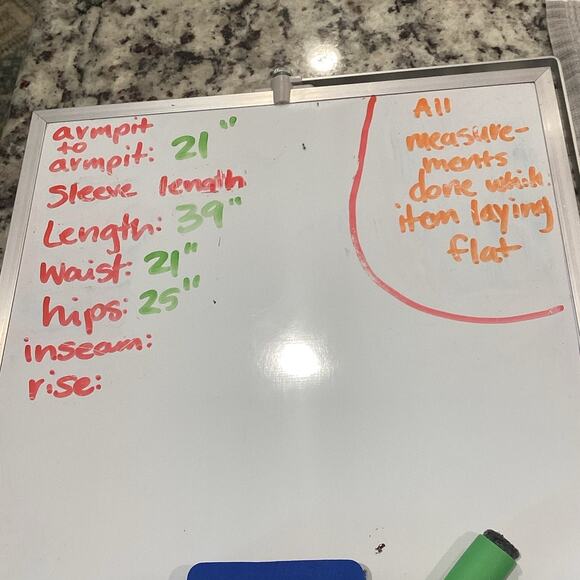 armpit
to
armpit: 21"
Sleeve length
Length: 39"
Waist: 21"
hips: 25"
inseam:
rise:
All
measure-
ments
done
item laying
flat